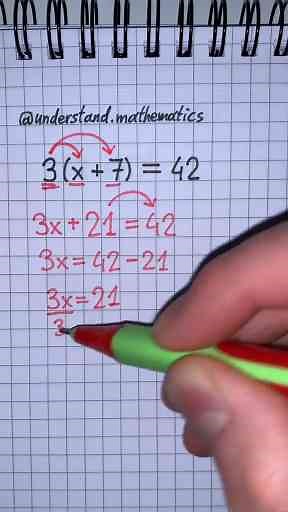 @understand.mathematics
3(x+7) = 42
3x+21=42
3x=42-21
3x=21
3